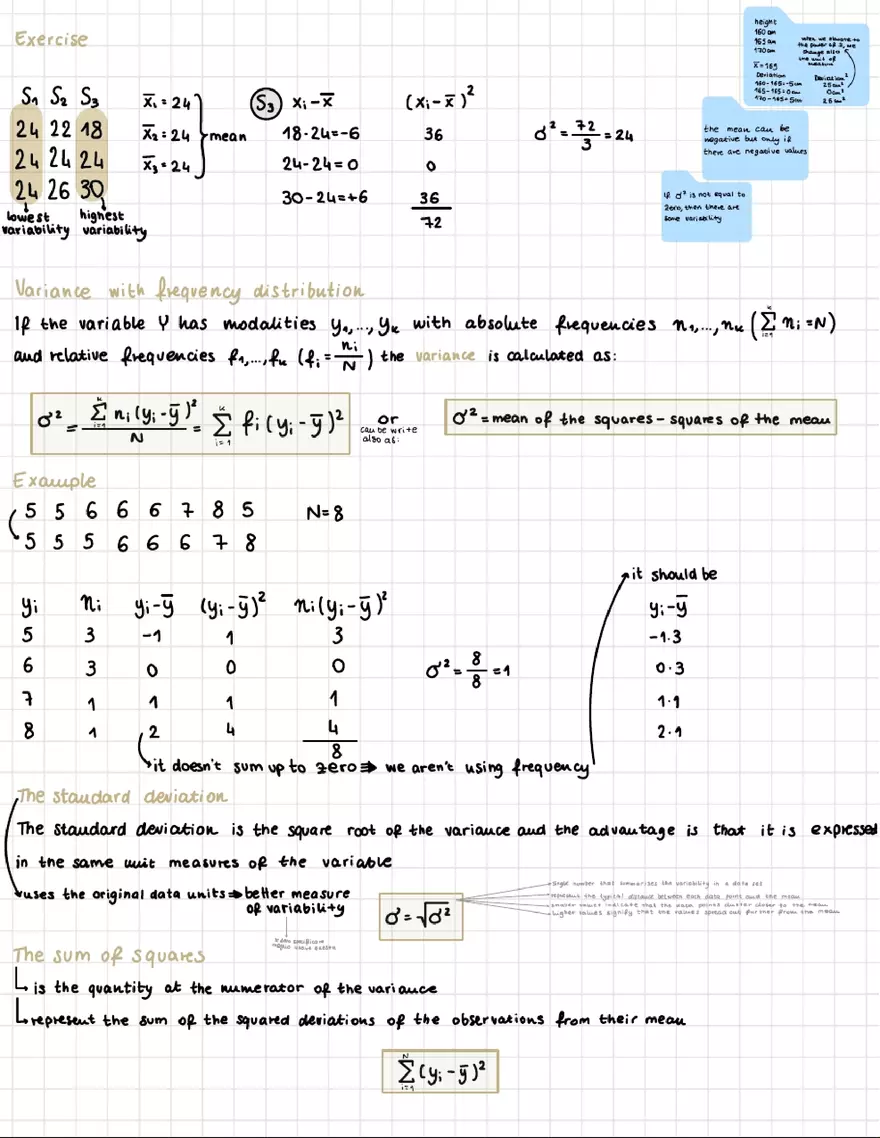 Exercise
S₁ S₂ S₃
24 22 18
24 24 24
24 26 30
lowest variability
highest variability
x̄₁ = 24
x̄₂ = 24
x̄₃ = 24
mean
S₃ xᵢ-x̄ (xᵢ-x̄)²
18-24=-6 36
24-24=0 0
30-24=+6 36
72
σ² = 72/3 = 24
height
160 cm
165 cm
170 cm
x̄ = 165
Deviation
160-165=-5cm
165-165=0cm
170-165=5cm
when we elevate to
the power of 2, we
change also
the unit of
measure
Deviation²
25cm²
0cm²
25cm²
the mean can be
negative but only if
there are negative values
If σ² is not equal to
zero, then there are
some variability
Variance with frequency distribution
If the variable Y has modalities y₁,...,yₖ with absolute frequencies n₁,...,nₖ (∑ᵢ₌₁ᵏ nᵢ = N)
and relative frequencies f₁,...,fₖ (fᵢ = nᵢ/N) the variance is calculated as:
σ² = ∑ᵢ₌₁ᵏ nᵢ(yᵢ-ȳ)² / N = ∑ᵢ₌₁ᵏ fᵢ(yᵢ-ȳ)²
or
can be write
also as:
σ² = mean of the squares - squares of the mean
Example
5 5 6 6 6 7 8 5 N=8
5 5 5 6 6 6 7 8
yᵢ nᵢ yᵢ-ȳ (yᵢ-ȳ)² nᵢ(yᵢ-ȳ)²
5 3 -1 1 3
6 3 0 0 0
7 1 1 1 1
8 1 2 4 4
8
σ² = 8/8 = 1
it should be
yᵢ-ȳ
-1·3
0·3
1·1
2·1
it doesn't sum up to zero ⇒ we aren't using frequency
The standard deviation
The standard deviation is the square root of the variance and the advantage is that it is expressed
in the same unit measures of the variable
uses the original data units ⇒ better measure
of variability
σ = √σ²
single number that summarises the variability in a data set
represent the typical distance between each data point and the mean
smaller values indicate that the data points cluster closer to the mean
higher values signify that the values spread out further from the mean
The sum of squares
is the quantity at the numerator of the variance
represent the sum of the squared deviations of the observations from their mean
∑ᵢ₌₁ᴺ (yᵢ-ȳ)²